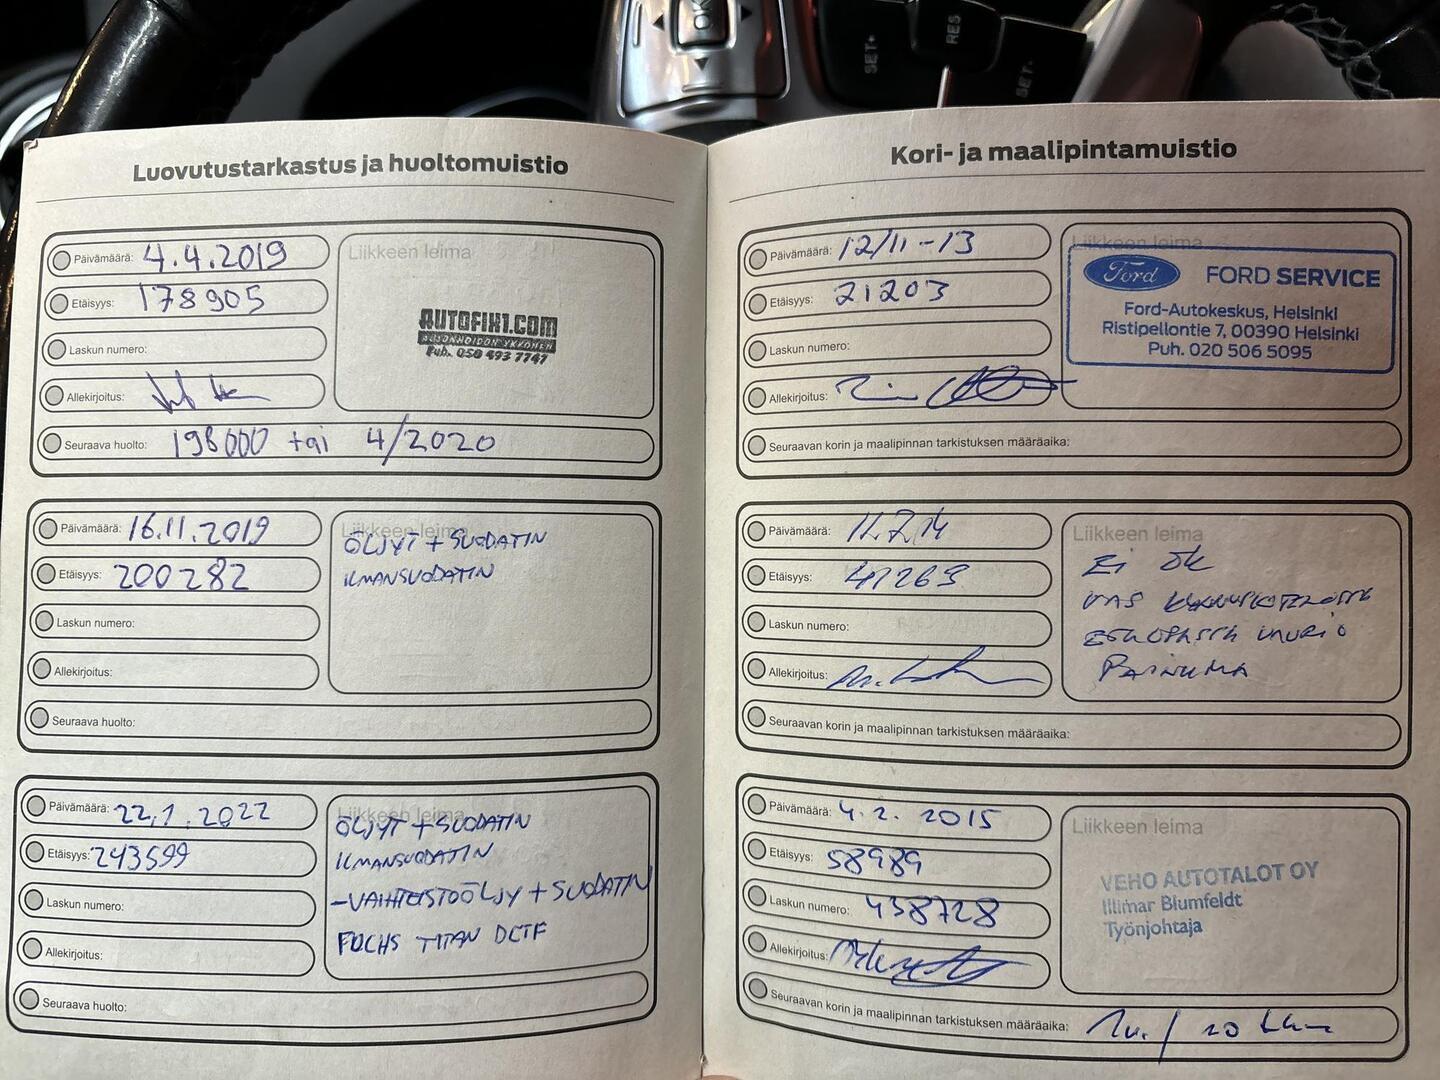 OK
SET+
RES
SET-
Luovutustarkastus ja huoltomuistio
Päivämäärä: 4.4.2019
Liikkeen leima
Etäisyys: 178905
AUTOFIX1.COM
AUTONHOIDON YKKÖNEN
Puh. 050 493 7747
Laskun numero:
Allekirjoitus:
Seuraava huolto: 198000 tai 4/2020
Päivämäärä: 16.11.2019
Liikkeen leima
ÖLJYT + SUODATIN
Etäisyys: 200282
ILMANSUODATIN
Laskun numero:
Allekirjoitus:
Seuraava huolto:
Päivämäärä: 22.1.2022
Liikkeen leima
ÖLJYT + SUODATIN
Etäisyys: 243599
ILMANSUODATIN
-VAIHTEISTOÖLJY + SUODATIN
Laskun numero:
FUCHS TITAN DCTF
Allekirjoitus:
Seuraava huolto:
Kori- ja maalipintamuistio
Päivämäärä: 12/11-13
Liikkeen leima
Ford FORD SERVICE
Etäisyys: 21203
Ford-Autokeskus, Helsinki
Ristipellontie 7, 00390 Helsinki
Puh. 020 506 5095
Laskun numero:
Allekirjoitus:
Seuraavan korin ja maalipinnan tarkistuksen määräaika:
Päivämäärä: 11.7.14
Liikkeen leima
Ei ok
Etäisyys: 41263
VAS
Laskun numero:
PAINUMA
Allekirjoitus:
Seuraavan korin ja maalipinnan tarkistuksen määräaika:
Päivämäärä: 4.2. 2015
Liikkeen leima
Etäisyys: 58989
VEHO AUTOTALOT OY
Illimar Blumfeldt
Työnjohtaja
Laskun numero: 438728
Allekirjoitus:
Seuraavan korin ja maalipinnan tarkistuksen määräaika: 1v. / 20